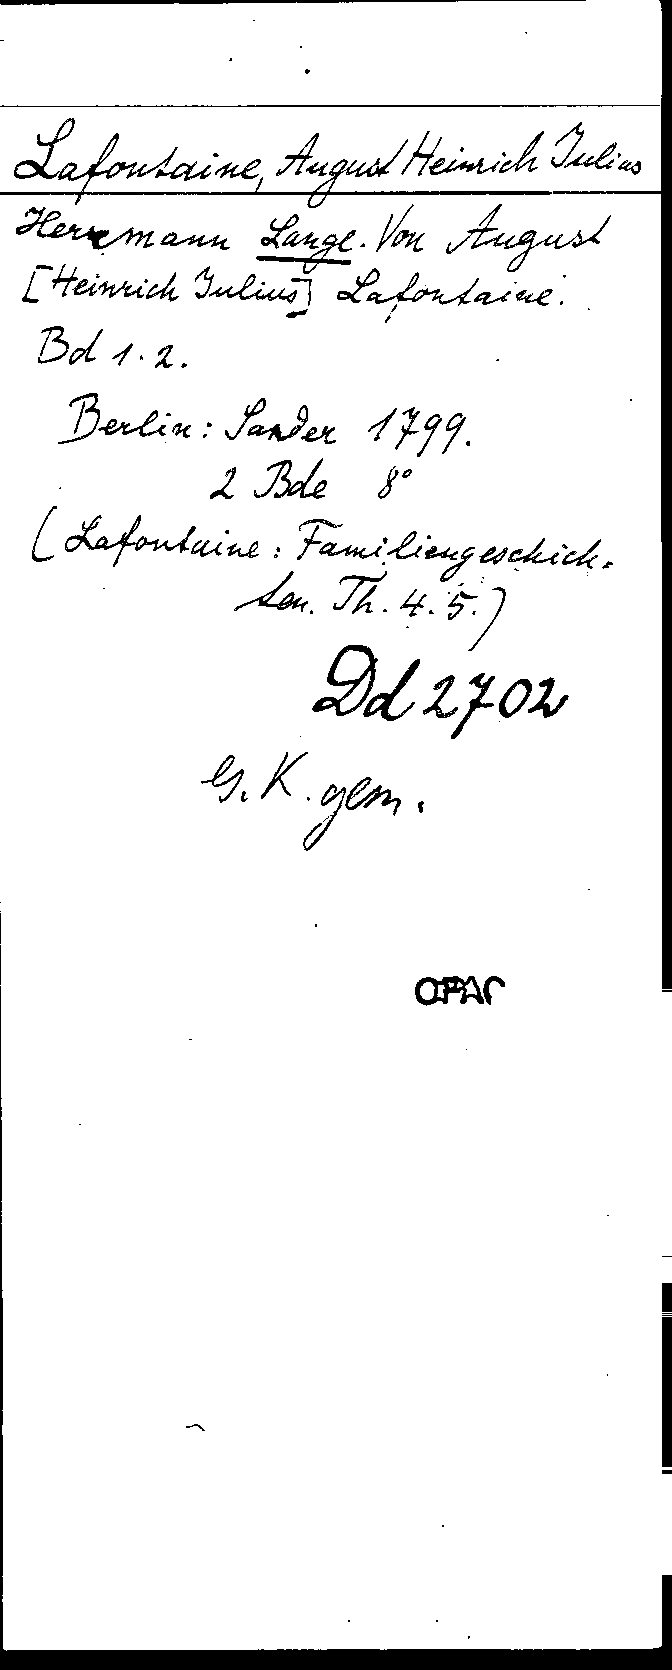 Lafontaine, August Heinrich Julius
Herrmann Lange. Von August
[Heinrich Julius] Lafontaine.
Bd 1. 2.
Berlin: Sander 1799.
2 Bde 8°
(Lafontaine: Familiengeschich-
ten. Th. 4. 5.)
Dd 2702
G. K. gem.
OPAC